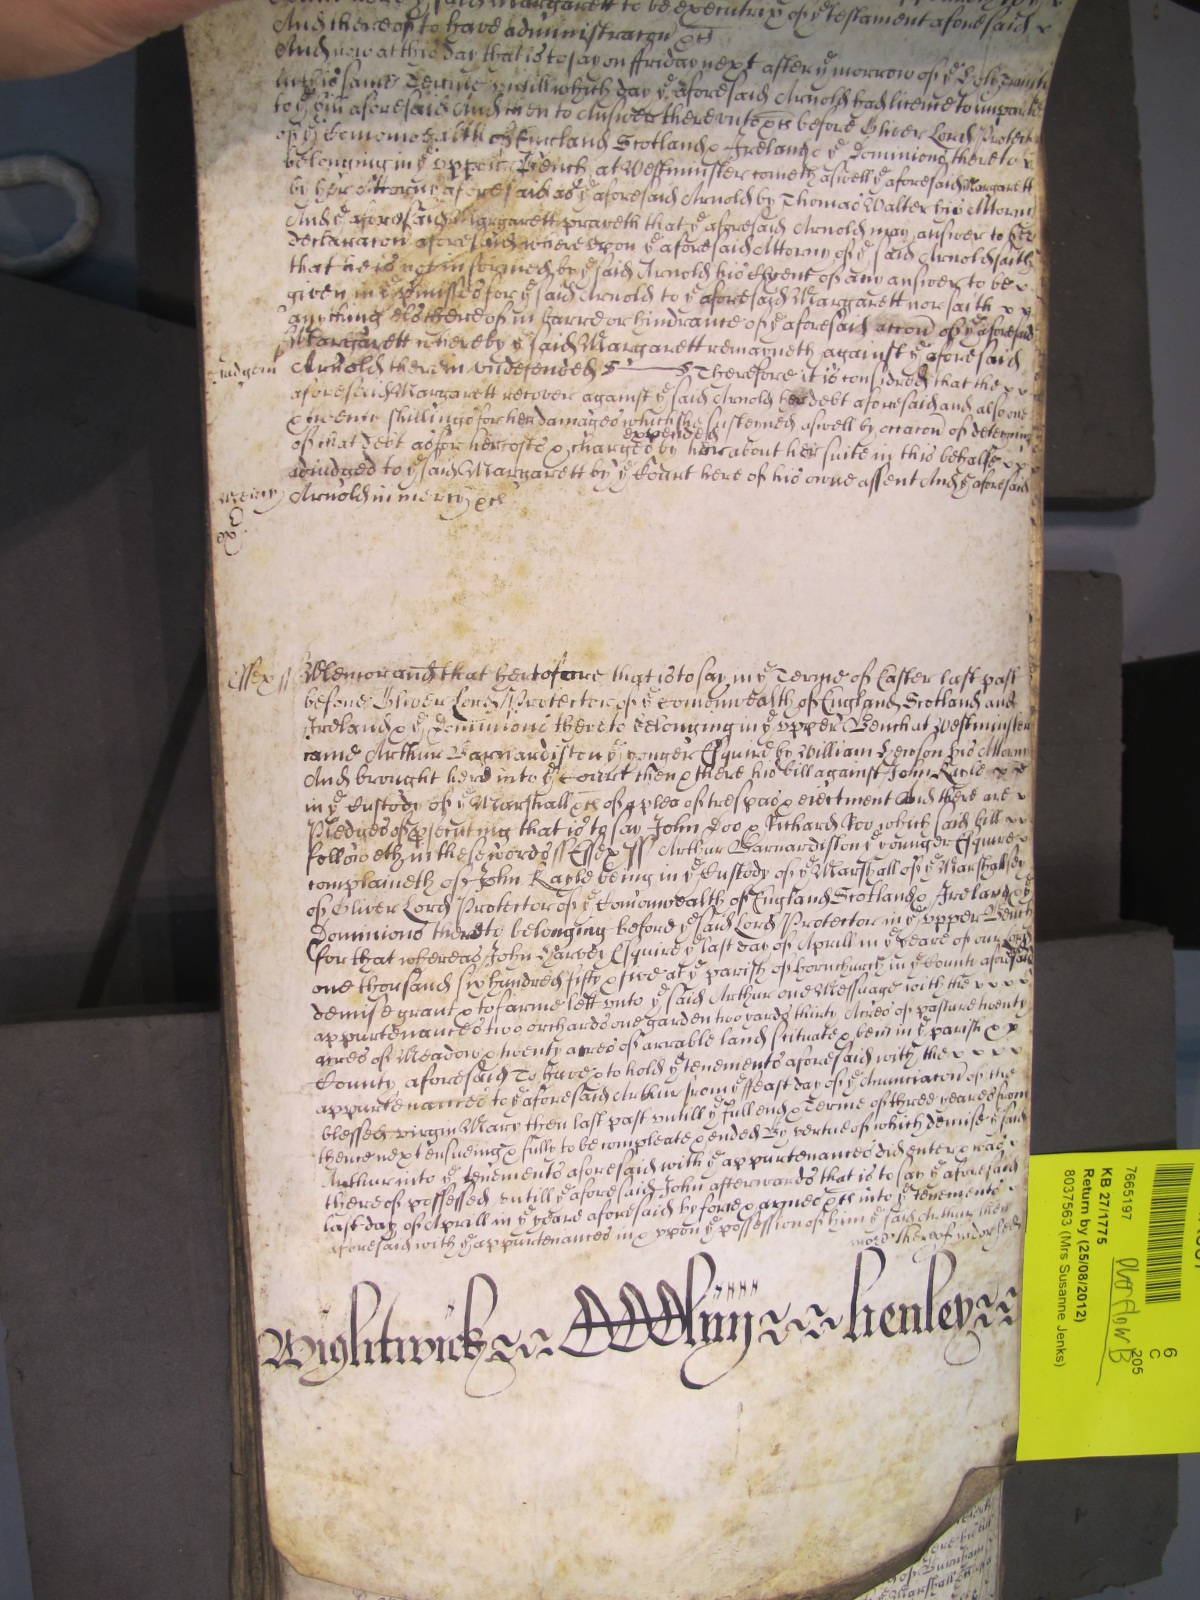 said Margarett to be executrix of ye testament aforesaid
And thereof to have administracon &c
And now at this day that is to say on ffriday next after ye morrow of ye holy Trinity
in this same Terme untill which day ye aforesaid Arnold had licence to imparle
to ye bill aforesaid And then to Answer thereunto &c before Oliver Lord Protector
of ye Comonwealth of England Scotland & Ireland & ye Dominions thereto
belonging in ye upper Bench at Westminster cometh aswell ye aforesaid Margarett
by her Attorny aforesaid as ye aforesaid Arnold by Thomas Walter his Attorny
And ye aforesaid Margarett prayeth that ye aforesaid Arnold may answer to her
Declaracon aforesaid whereupon ye aforesaid Attorny of ye said Arnold saith
that he is not informed by ye said Arnold his Clyent of any answer to be
given in ye premisses for ye said Arnold to ye aforesaid Margarett nor saith
anything els thereof in barre or hindrance of ye aforesaid accon of ye aforesaid
Margarett whereby ye said Margarett remayneth against ye aforesaid
Judgemt Arnold therein undefended Therefore it is considred that the
aforesaid Margarett recover against ye said Arnold her debt aforesaid and also one
& twenty shillings for her damages which she susteined aswell by occacon of deteining
expended
of that debt as for her costs & charges by her about her suite in this behalfe
adiudged to ye said Margarett by ye Court here of his owne assent And ye aforesaid
Mercy Arnold in mercy &c
Essex ss Memorand that heretofore that is to say in ye Terme of Easter last past
before Oliver Lord Protector of ye Comonwealth of England Scotland and
Ireland & ye Dominions thereto belonging in ye upper Bench at Westminster
came Arthur Barnardiston ye yonger Esquire by William Hewson his Attorny
And brought here into ye Court then & there his bill against John Kayle
in ye Custody of ye Marshall &c of a plea of trespas & eiectment And there are
Pledges of prosecuting that is to say John Doo & Richard Roo which said bill
followeth in these words ss Essex ss Arthur Barnardiston ye younger Esquire
complaineth of John Kayle being in ye Custody of ye Marshall of ye Marshallsey
of Oliver Lord Protector of ye Comonwealth of England Scotland & Ireland & ye
Dominions thereto belonging before ye said Lord Protector in ye upper Bench
For that whereas John Harvey Esquire ye last day of Aprill in ye yeare of our Lord
one thousand six hundred fifty & five at ye parish of Hornchurch in ye County aforesaid
demise grant & to farme lett unto ye said Arthur one Messuage with the
appurtenances two orchards one garden two yards thirty Acres of pasture twenty
acres of Meadow & twenty acres of arrable land scituate & being in ye parish &
County aforesaid To have & to hold ye tenements aforesaid with the
appurtenances to ye aforesaid Arthur from ye ffeast day of ye Anunciacon of the
blessed virgin Mary then last past untill ye full end & Terme of three yeares from
thence next ensueing & fully to be compleate & ended By vertue of which demise ye said
Arthur into ye tenements aforesaid with ye appurtenances did enter & was
thereof possessed untill ye aforesaid John afterwards that is to say ye aforesaid
last day of Aprill in ye yeare aforesaid by force & armes &c into ye tenements
aforesaid with ye appurtenances in & upon ye possession of him ye said Arthur then
more thereof indorsed
Wightwick Henley
7665197
KB 27/1775
Return by (25/08/2012)
8037563 (Mrs Susanne Jenks)
6
C
205